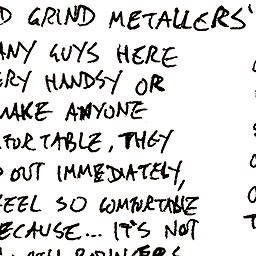 D GRIND METALLERS'
ANY GUYS HERE
ERY HANDSY OR
MAKE ANYONE
FORTABLE, THEY
OUT IMMEDIATELY,
FEEL SO COMFORTABLE
BECAUSE... IT'S NOT